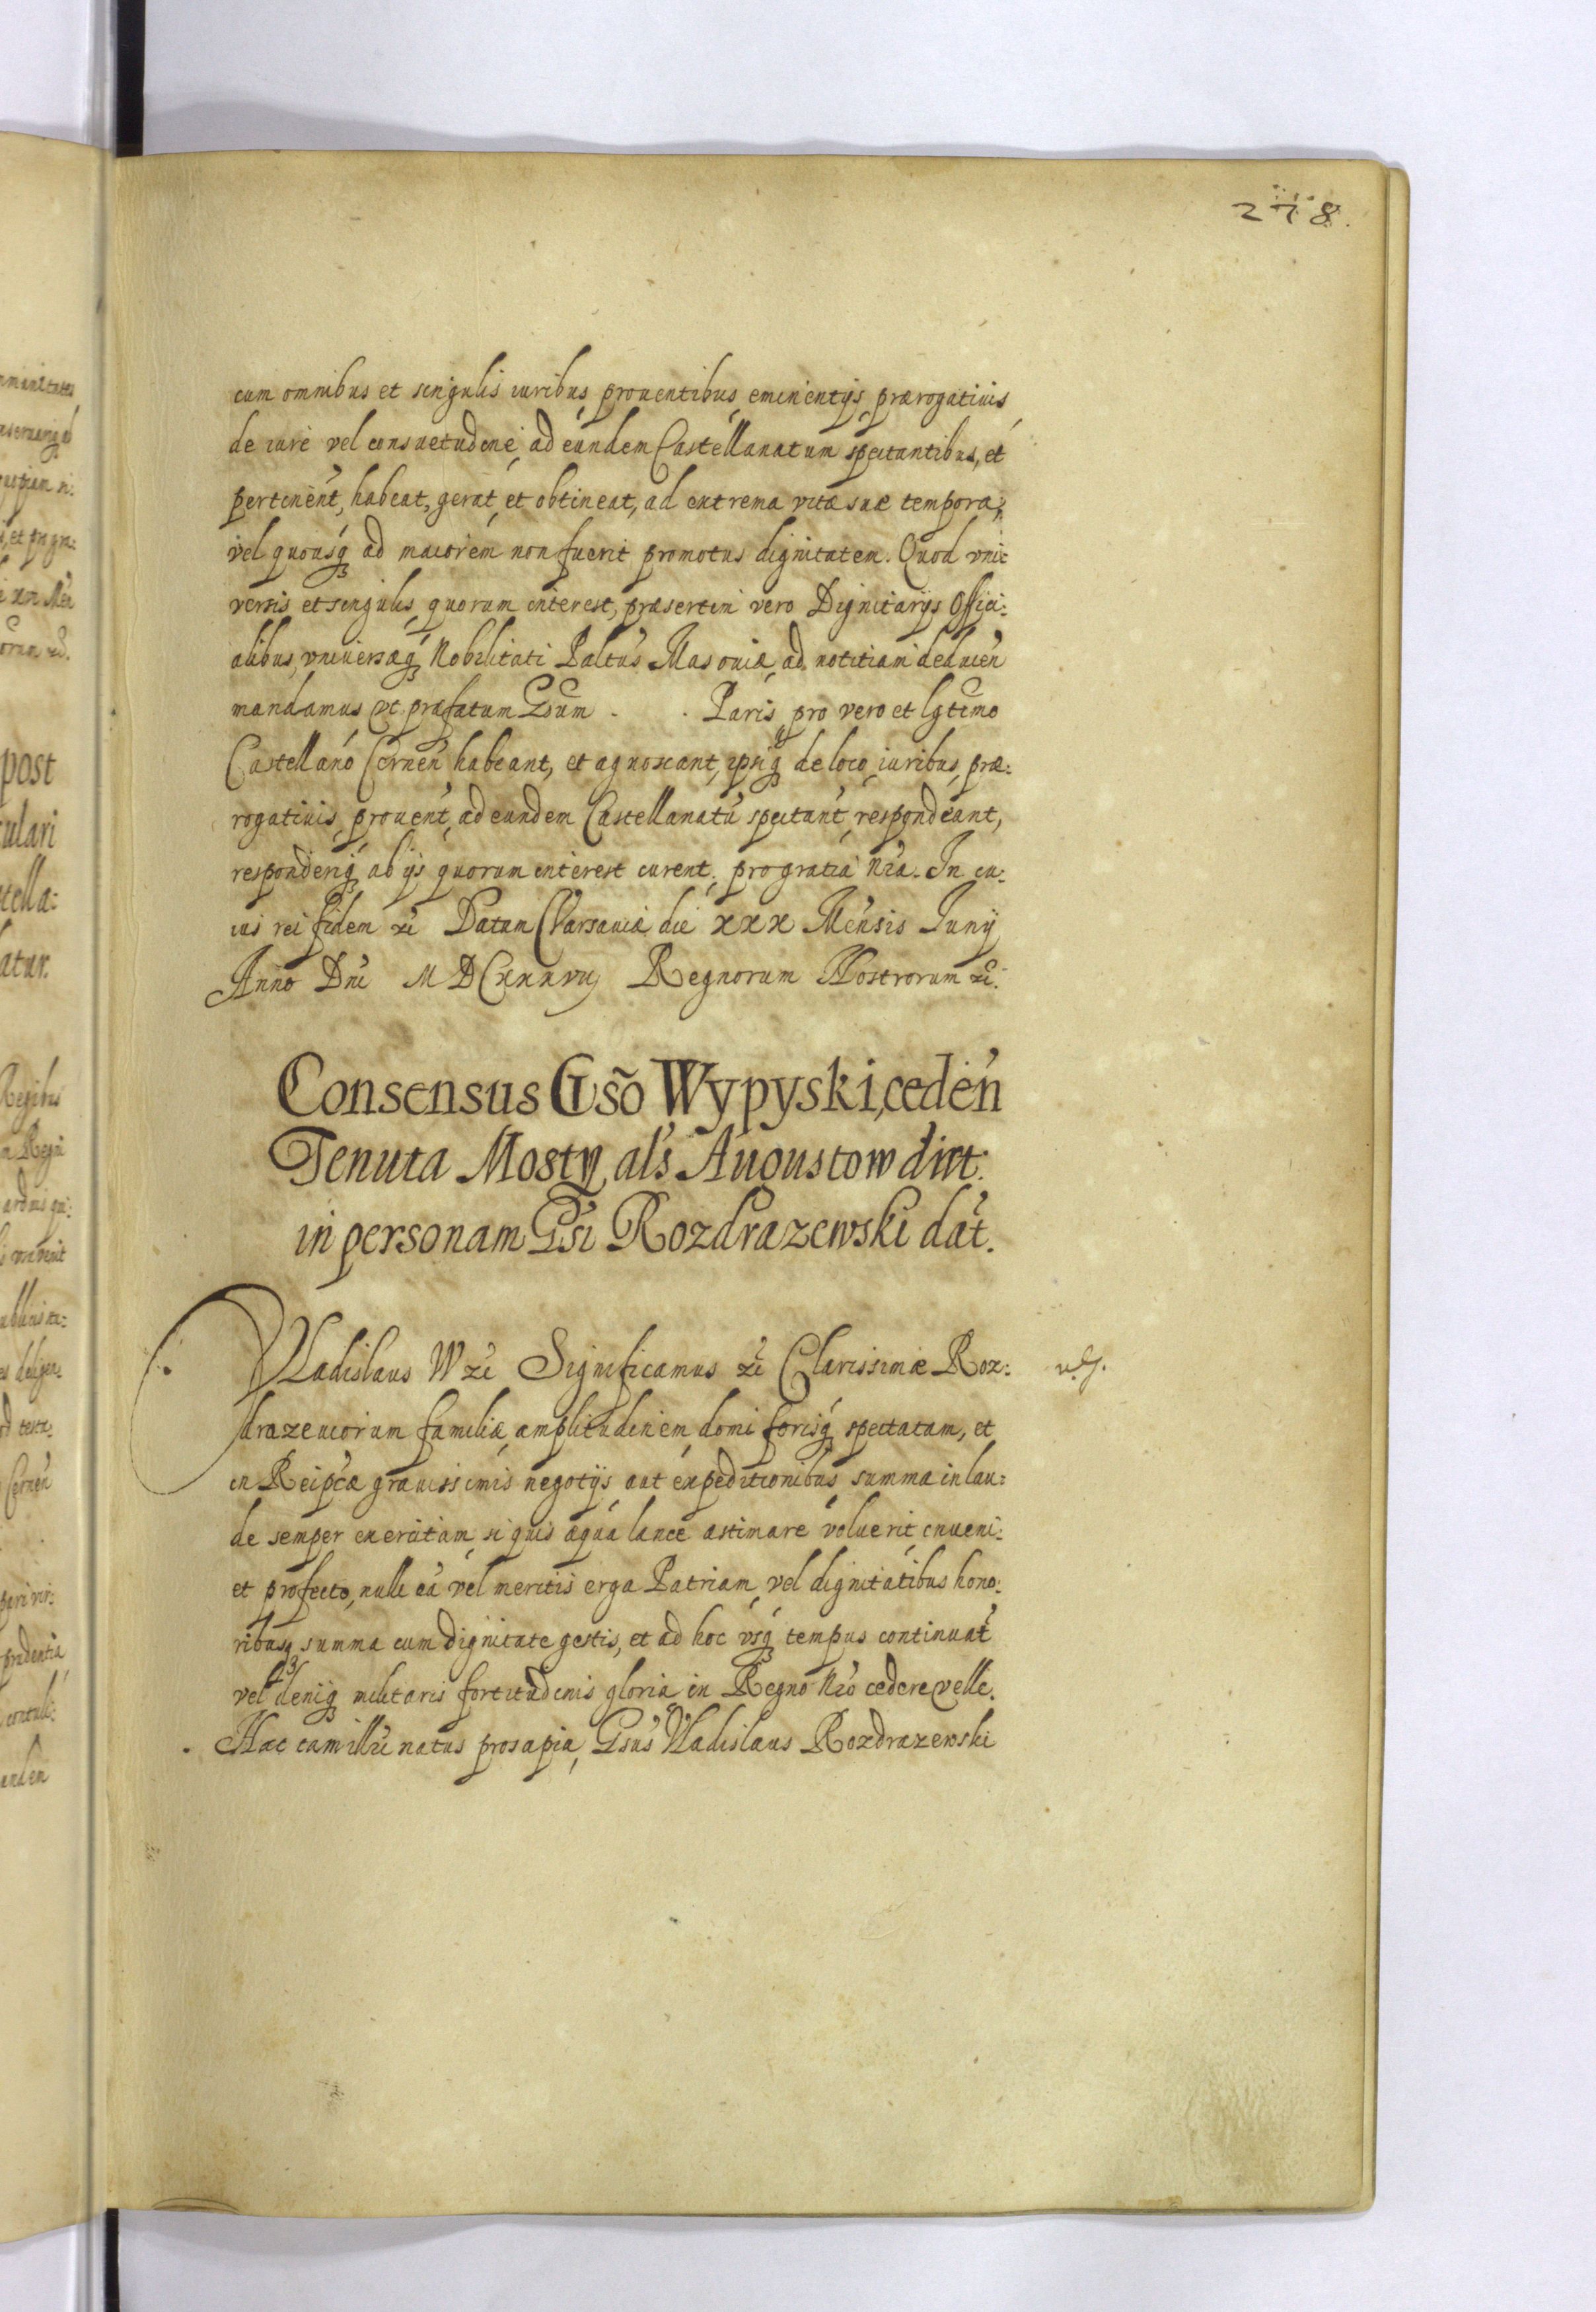 278.
cum omnibus et singulis iuribus prouentibus eminentijs prærogatiuis
de iure vel consuetudine, ad eundem Castellanatum spectantibus, et
pertinen̄t, habeat, gerat, et obtineat, ad extrema vitæ suæ tempora,
vel quousq̢ ad maiorem non fuerit promotus dignitatem. Quod vni:
versis et singulis, quorum interest, præsertim vero Dignitarijs Offici:
alibus, vniuersæq̢ Nobilitati Paltūs Masouiæ, ad notitiam deducen̄
mandamus vt præfatum Gsūm . . Paris, pro vero et lgt̄imo
Castellano Cernen̄ habeant, et agnoscant, ipsiq̢ de loco, iuribus, præ:
rogatiuis, prouen̄t, ad eundem Castellanatū spectan̄t, respondeant,
responderiq̢ ab ijs quorum interest curent, pro gratia nr̄a. In cu:
ius rei fidem &c̄ Datum Varsauiæ die XXX Mensis Junij
Anno Dn̄i MDCXXXVII Regnorum Nostrorum &c̄.
Consensus Gsō Wypyski, ceden̄
Tenuta Mosty als̄ Augustow dict.
in personam Gsī Rozdrazewski dat̄.
Vladislaus IV &c̄ Significamus &c̄ Clarissimæ Roz:
drazeuiorum familiæ, amplitudinem domi forisq̢ spectatam, et
in Reipc̄æ grauissimis negotijs aut expeditionibus, summa in lau:
de semper exercitam, si quis æqua lance æstimare voluerit, inueni:
et profecto, nulli ea vel meritis erga Patriam, vel dignitatibus hono:
ribusq̢ summa cum dignitate gestis, et ad hoc vsq̢ tempus continuat̄
vel deniq̢ militaris fortitudinis gloria, in Regno nr̄o cedere velle.
Hac cum illr̄i natus prosapia, Gsūs Vladislaus Rozdrazewski